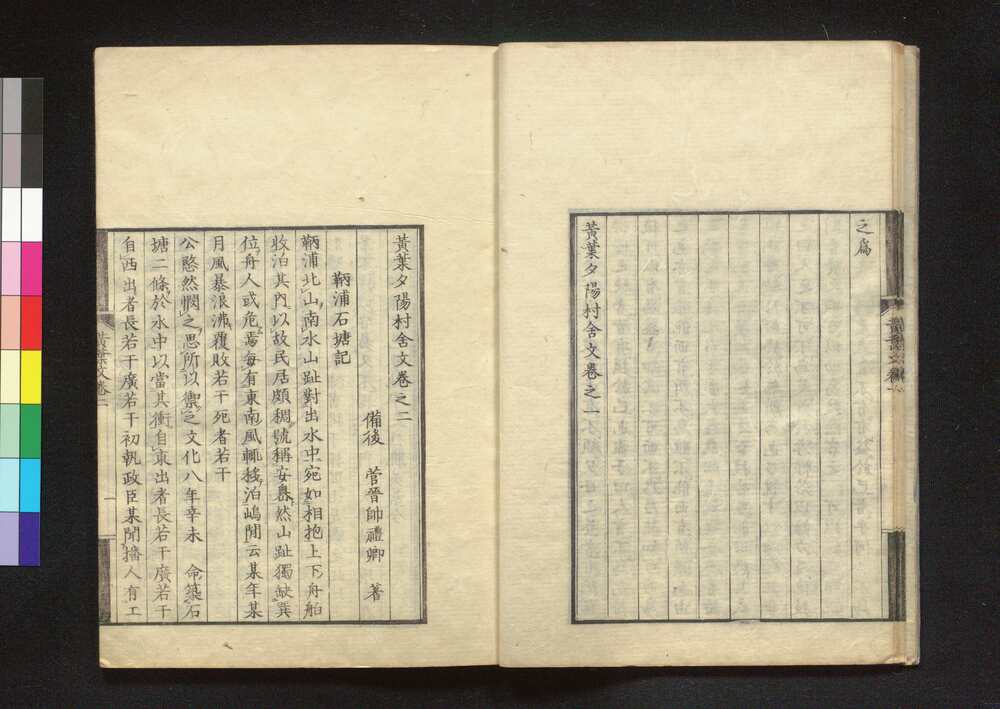 之為
黃葉夕陽村舍文卷之一
黃葉夕陽村舍文卷之二
備後 菅晉帥禮卿 著
鞆浦石塘記
鞆浦北山南水山趾對出水中宛如相抱上下舟舶
收泊其內以故民居頗稠號稱安然山趾獨缺巽
位舟人或危焉每有東南風輒移泊嶋間云某年某
月風暴浪沸覆敗若干死者若干
公愍然憫之思所以禦之文化八年辛未 命築石
塘二條於水中以當其衝自東出者長若干廣若干
自西出者長若干廣若干初執政臣某聞播人有工